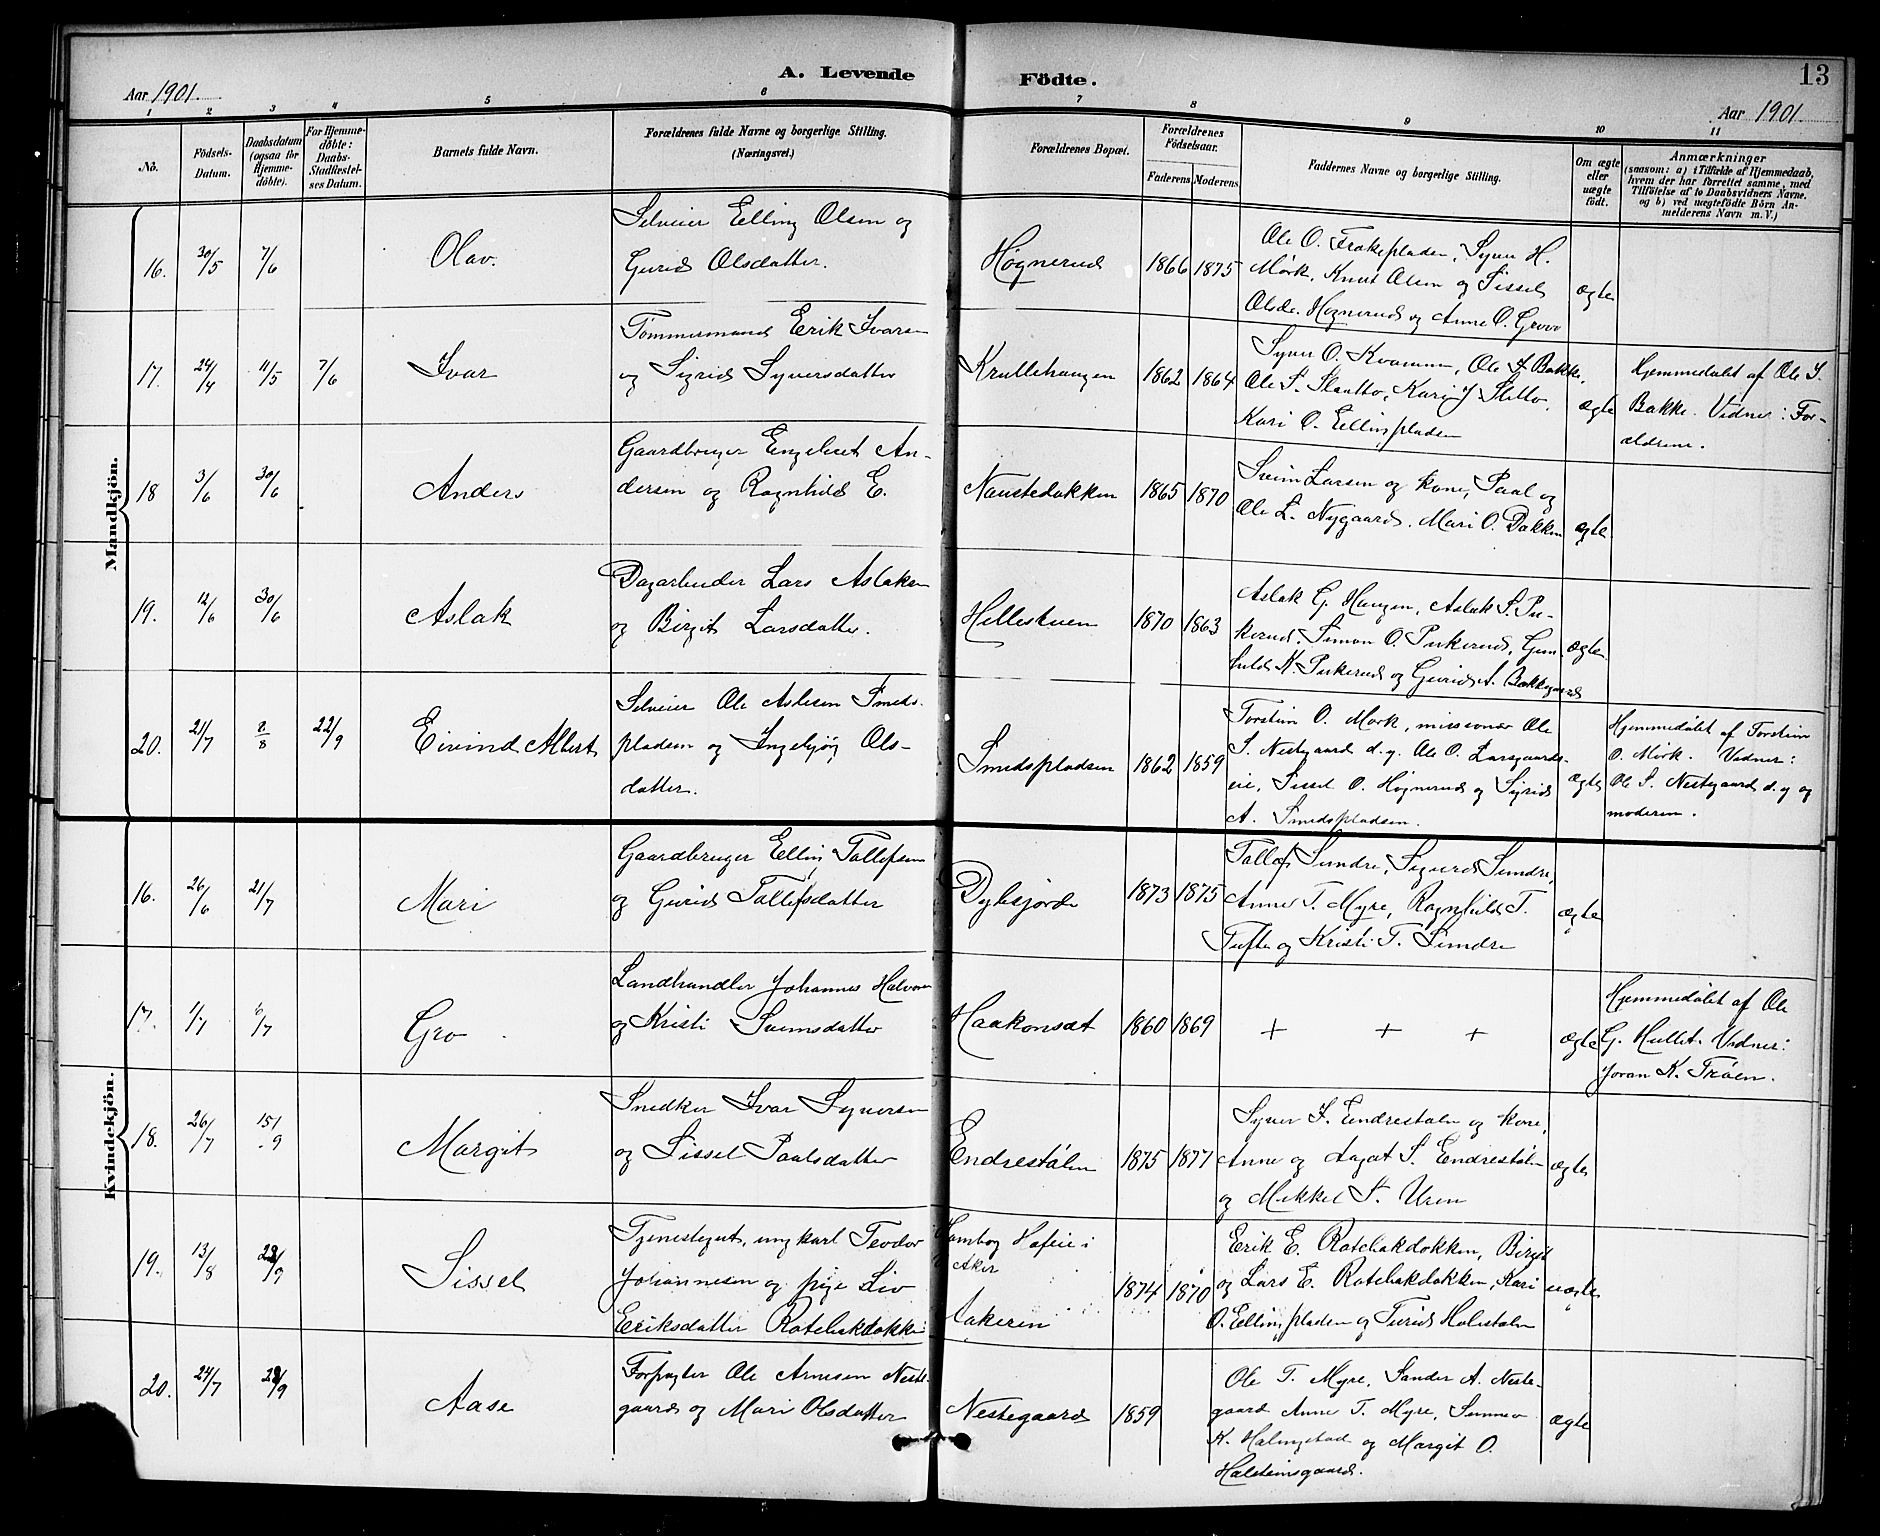 A. Levende Födte.
13
Aar 1901.
Aar 1901.
1 2 3 4 5 6 7 8 9 10 11
No.
Födsels-Datum.
Daabsdatum (ogsaa for Hjemmedöbte).
For Hjemmedöbte: Daabs-Stadfestelses Datum.
Barnets fulde Navn.
Forældrenes fulde Navne og borgerlige Stilling.
(Næringsvei.)
Forældrenes Bopæl.
Forældrenes Födselsaar.
Faderens Moderens
Faddernes Navne og borgerlige Stilling.
Om ægte eller uægte födt.
Anmærkninger
(saasom: a) i Tilfælde af Hjemmedaab,
hvem der har forrettet samme, med
Tilföielse af to Daabsvidners Navne.
og b) ved uægtefödte Börn An-
melderens Navn m. V.)
Mandkjön.
16. 30/5 7/6 Olav.
Selveier Elling Olsen og
Gurid Olsdatter.
Høgnerud 1866 1875
Ole O. Frakepladsen, Syver H.
Mörk, Knut Olsen og Sissel
Olsdr. Høgnerud og Anne O. Grovo
ægte
17. 24/4 11/5 7/6 Ivar
Tømmermand Erik Ivarsen
og Sigrid Syversdatter
Krullehaugen 1862 1864
Syver O. Kvammen, Ole S. Bakke,
Ole S. Slaatto, Kari J Sletto,
Kari O. Ellingpladsen
ægte
Hjemmedøbt af Ole S.
Bakke. Vidner: For-
ældrene.
18 3/6 30/6 Anders
Gaardbruger Engebret An-
dersen og Ragnhild E.
Naustedokken 1865 1870
Svein Larsen og kone, Paal og
Ole L. Nygaard, Mari O. Dokken
ægte
19. 12/6 30/6 Aslak
Dagarbeider Lars Aslaksen
og Birgit Larsdatter.
Hellestuen 1870 1863
Aslak G. Haugen, Aslak S. Pu-
kerud, Simon O. Pukerud, Gun-
hild K. Pukerud og Gurid A. Bakkegaard
ægte
20. 21/7 8/8 22/9 Eivind Albert
Selveier Ole Aslesen Smeds-
pladsen og Ingebjørg Ols-
datter.
Smedspladsen 1862 1859
Torstein O. Mørk, missionær Ole
S. Nestegaard d. y. Ole O. Larsgaards-
eie, Sissel O. Høgnerud og Sigrid
A. Smedspladsen.
ægte
Hjemmedøbt af Torstein
O. Mörk. Vidner:
Ole S. Nestegaard d. y og
moderen.
Kvindekjön.
16. 26/6 21/7 Mari
Gaardbruger Elling Tollefsen
og Gurid Tollefsdatter
Dylesjorde 1873 1875
Tollef Sundre, Sigurd Sundre,
Anne T. Myre, Ragnhild T.
Tufte og Kristi T. Sundre
ægte
17. 1/7 6/7 Gro
Landhandler Johannes Halvorsen
og Kristi Sveinsdatter
Haakonsæt 1860 1869
+ + +
ægte
Hjemmedøbt af Ole
G. Hullet. Vidner:
Joran K. Trøen.
18. 26/7 15/9 Margit
Snedker Ivar Syversen
og Sissel Paalsdatter
Endrestølen 1875 1877
Syver I. Endrestølen og kone,
Anne og Aagot S. Endrestølen
og Mikkel S. Uren
ægte
19. 13/8 22/9 Sissel
Tjenestegut, ungkarl Teodor
Johannesen og pige Liv
Eriksdatter Rotebakdokken
i
Aker
Aakeren
1874 1870
Erik E. Rotebakdokken, Birgit
og Lars E. Rotebakdokken, Kari
O. Ellingpladsen og Turid Halestølen
uægte
20. 24/7 29/9 Aase
Forpagter Ole Arnesen Neste-
gaard og Mari Olsdatter
Nestegaard 1859
Ole T. Myre, Sander A. Neste-
gaard Anne T. Myre, Sunnev
K. Halingstad og Margit O.
Halsteinsgaard.
ægte